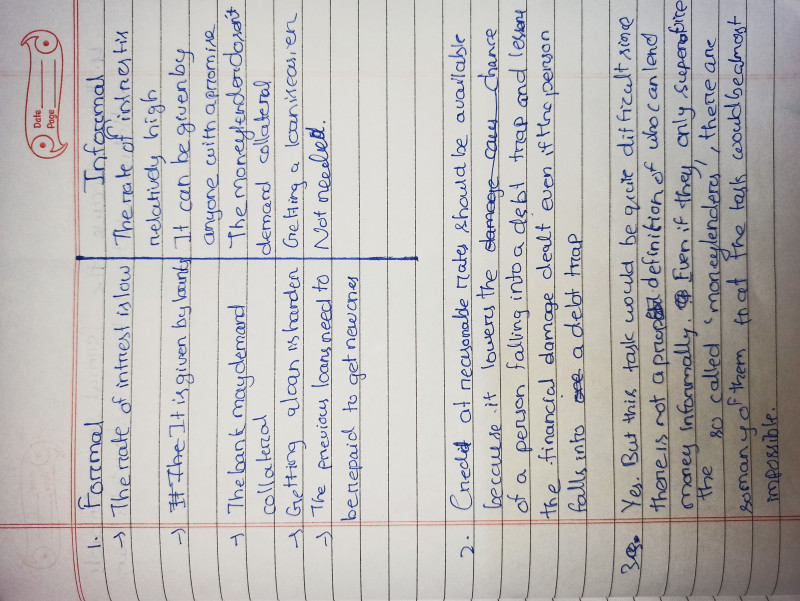 Date
Page
1. Formal Informal
→ The rate of intrest is low The rate of intrest is
relatively high
→ It is given by banks It can be given by
anyone with a promise
→ The bank may demand The moneylender doesn't
collateral demand collateral
→ Getting a loan is harder Getting a loan is easier
→ The previous loans need to Not needed.
be repaid to get new ones
2. Credit at reasonable rates should be available
because it lowers the damage chance
of a person falling into a debt trap and lessen
the financial damage dealt even if the person
falls into a debt trap
3. Yes. But this task would be quite difficult since
there is not a definition of who can lend
money informally. Even if they only supervise
the so called 'moneylenders', there are
so many of them that the task would be almost
impossible.